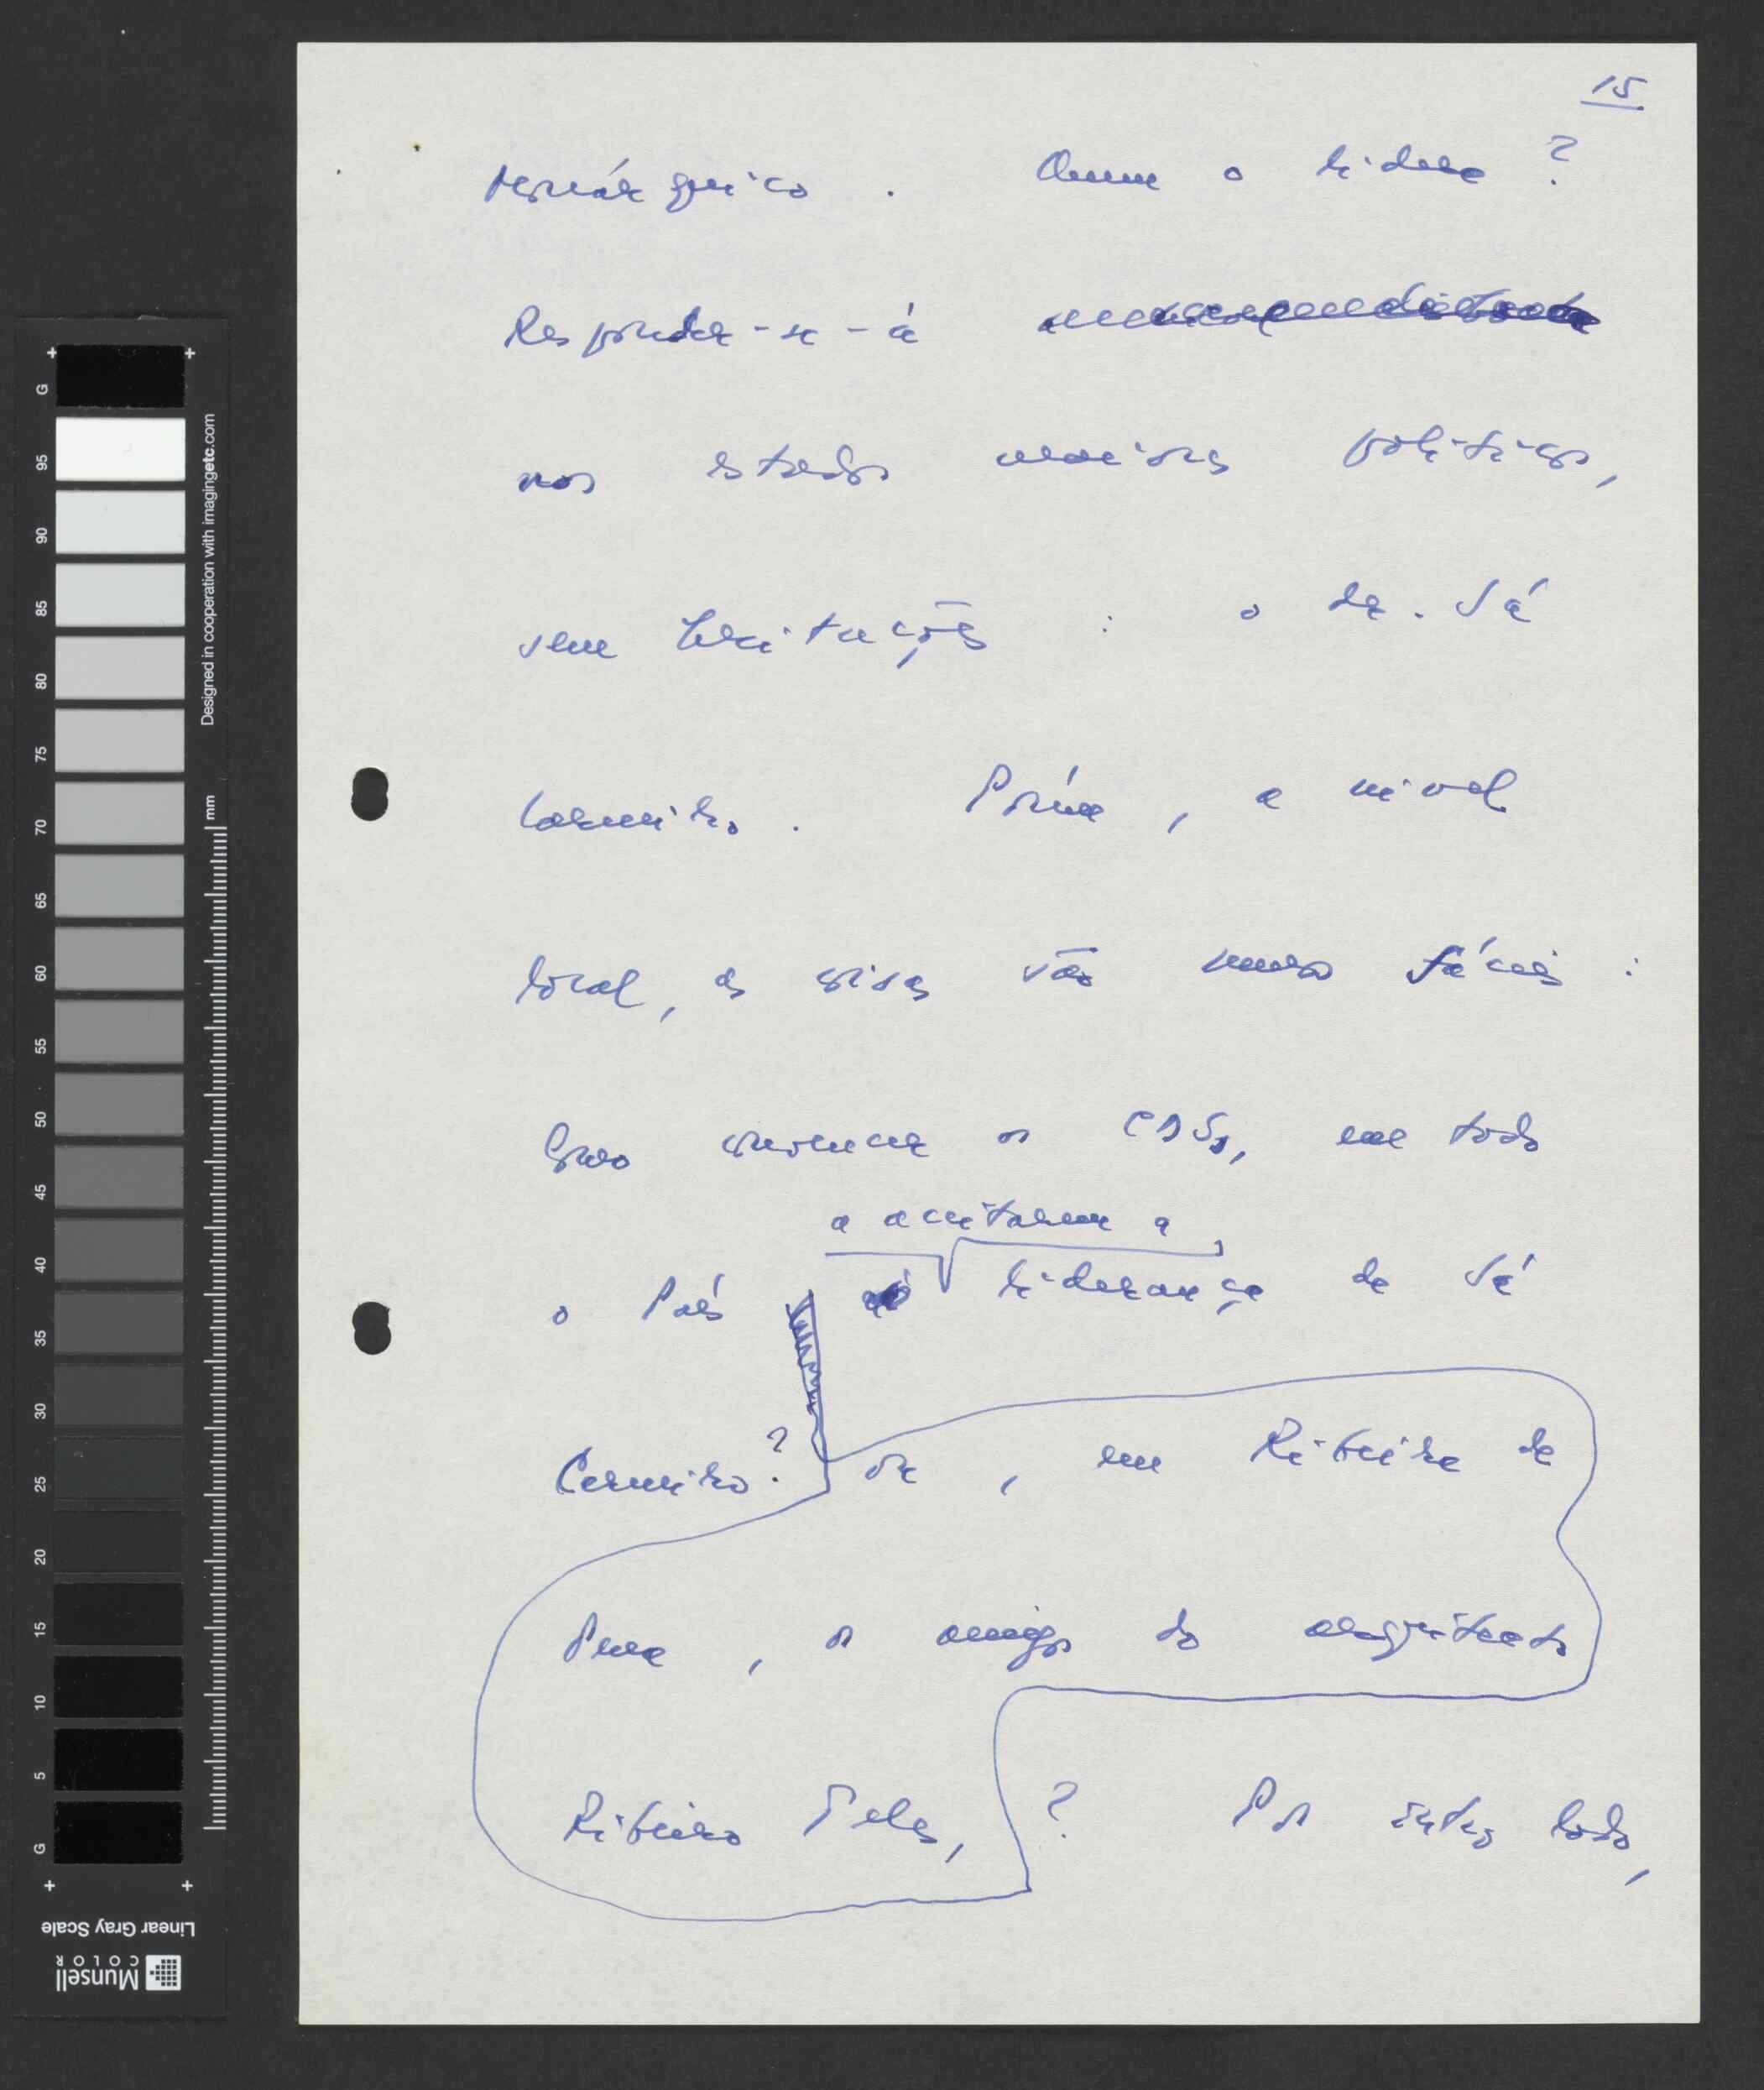 15
monárquico. Quem o lidera?
Responder-se-á
nos estados maiores políticos,
sem hesitações : o dr. Sá
Carneiro. Porém, a nível
local, as coisas são menos fáceis :
Como convencer os CDSs, em todo
a aceitarem a
o País liderança de Sá
Carneiro? ou, em Ribeira de
Pena, os amigos do arquitecto
Ribeiro Teles, ? Por outro lado,
G 95 90 85 80 75 70 65 60 55 50 45 40 35 30 25 20 15 10 5 G
Designed in cooperation with imagingetc.com
mm
Linear Gray Scale
Munsell
COLOR